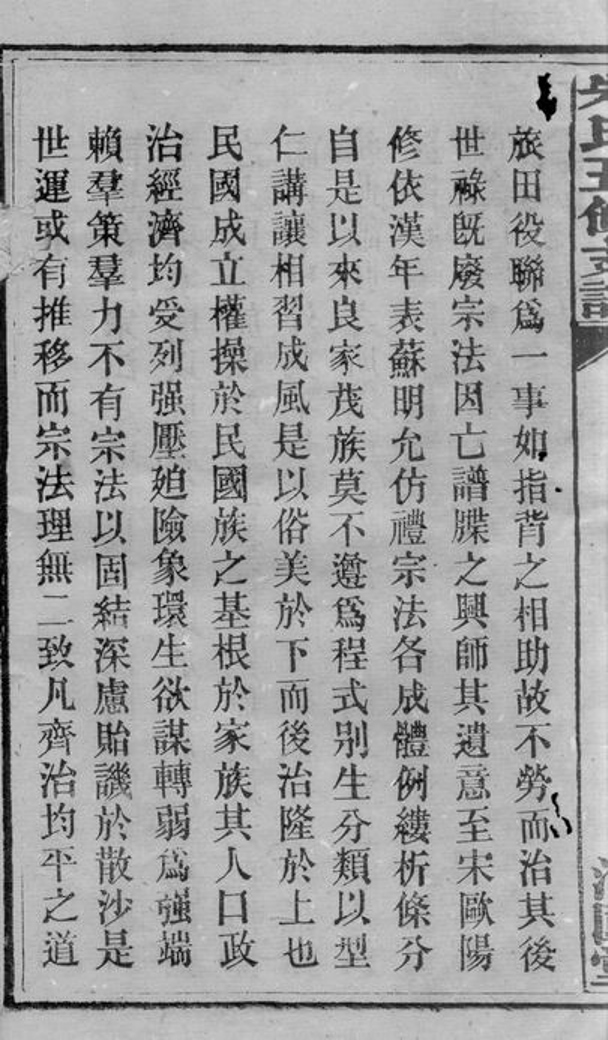 氏五修支譜
旅田役聯爲一事如指背之相助故不勞而治其後
世祿旣廢宗法因亡譜牒之興師其遺意至宋歐陽
修依漢年表蘇明允仿禮宗法各成體例縷析條分
自是以來良家茂族莫不遵爲程式别生分類以型
仁講讓相習成風是以俗美於下而後治隆於上也
民國成立權操於民國族之基根於家族其人口政
治經濟均受列强壓廹險象環生欲謀轉弱爲强端
賴羣策羣力不有宗法以固結深慮貽譏於散沙是
世運或有推移而宗法理無二致凡齊治均平之道